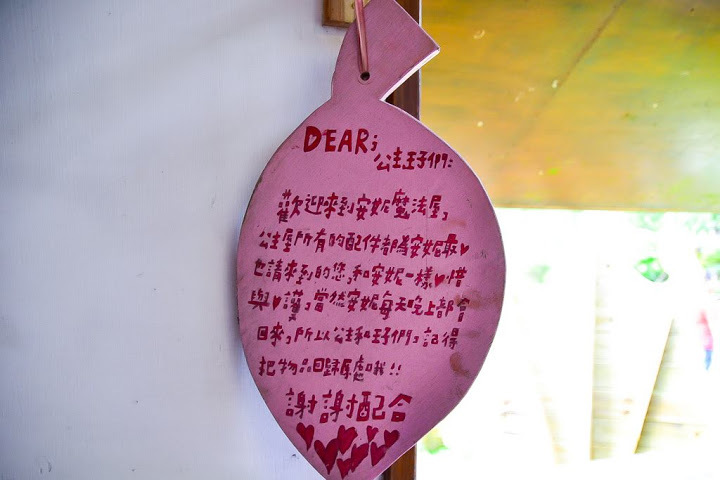 DEAR;
公主王子們:
歡迎來到安妮魔法屋,
公主屋所有的配件都為安妮最♥
也請來到的您,和安妮一樣♥惜
與♥護,當然安妮每天晚上都會
回來,所以公主和王子們,記得
把物品回歸原處哦!!
謝謝配合